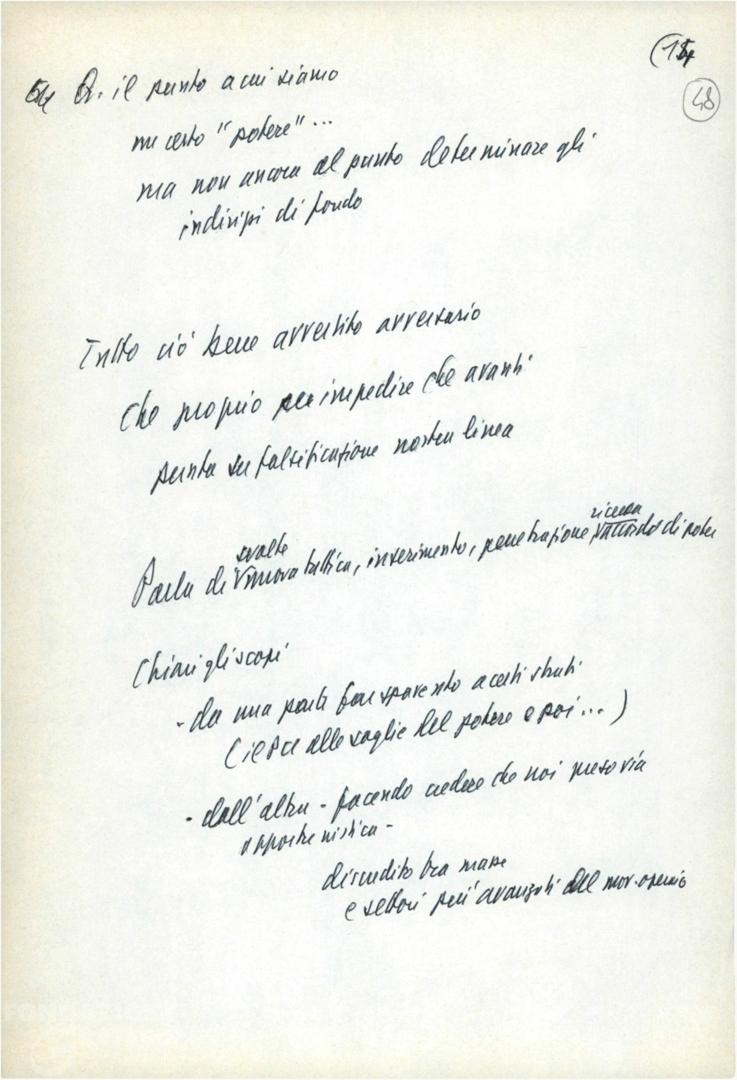 (15
48
54 Q. il punto a cui siamo
un certo "potere"...
ma non ancora al punto determinare gli
indirizzi di fondo
Tutto ciò bene avvertito avversario
che proprio per impedire che avanti
punta su falsificazione nostra linea
svolte
ricerca
Parla di nuova tattica, inserimento, penetrazione, di potere
Chiari gli scopi
- da una parte fare spavento a certi strati
(il PCI alle soglie del potere e poi...)
- dall'altra - facendo credere che noi preso via
opportunistica -
discredito tra masse
e settori più avanzati del mov. operaio
FONDAZIONE